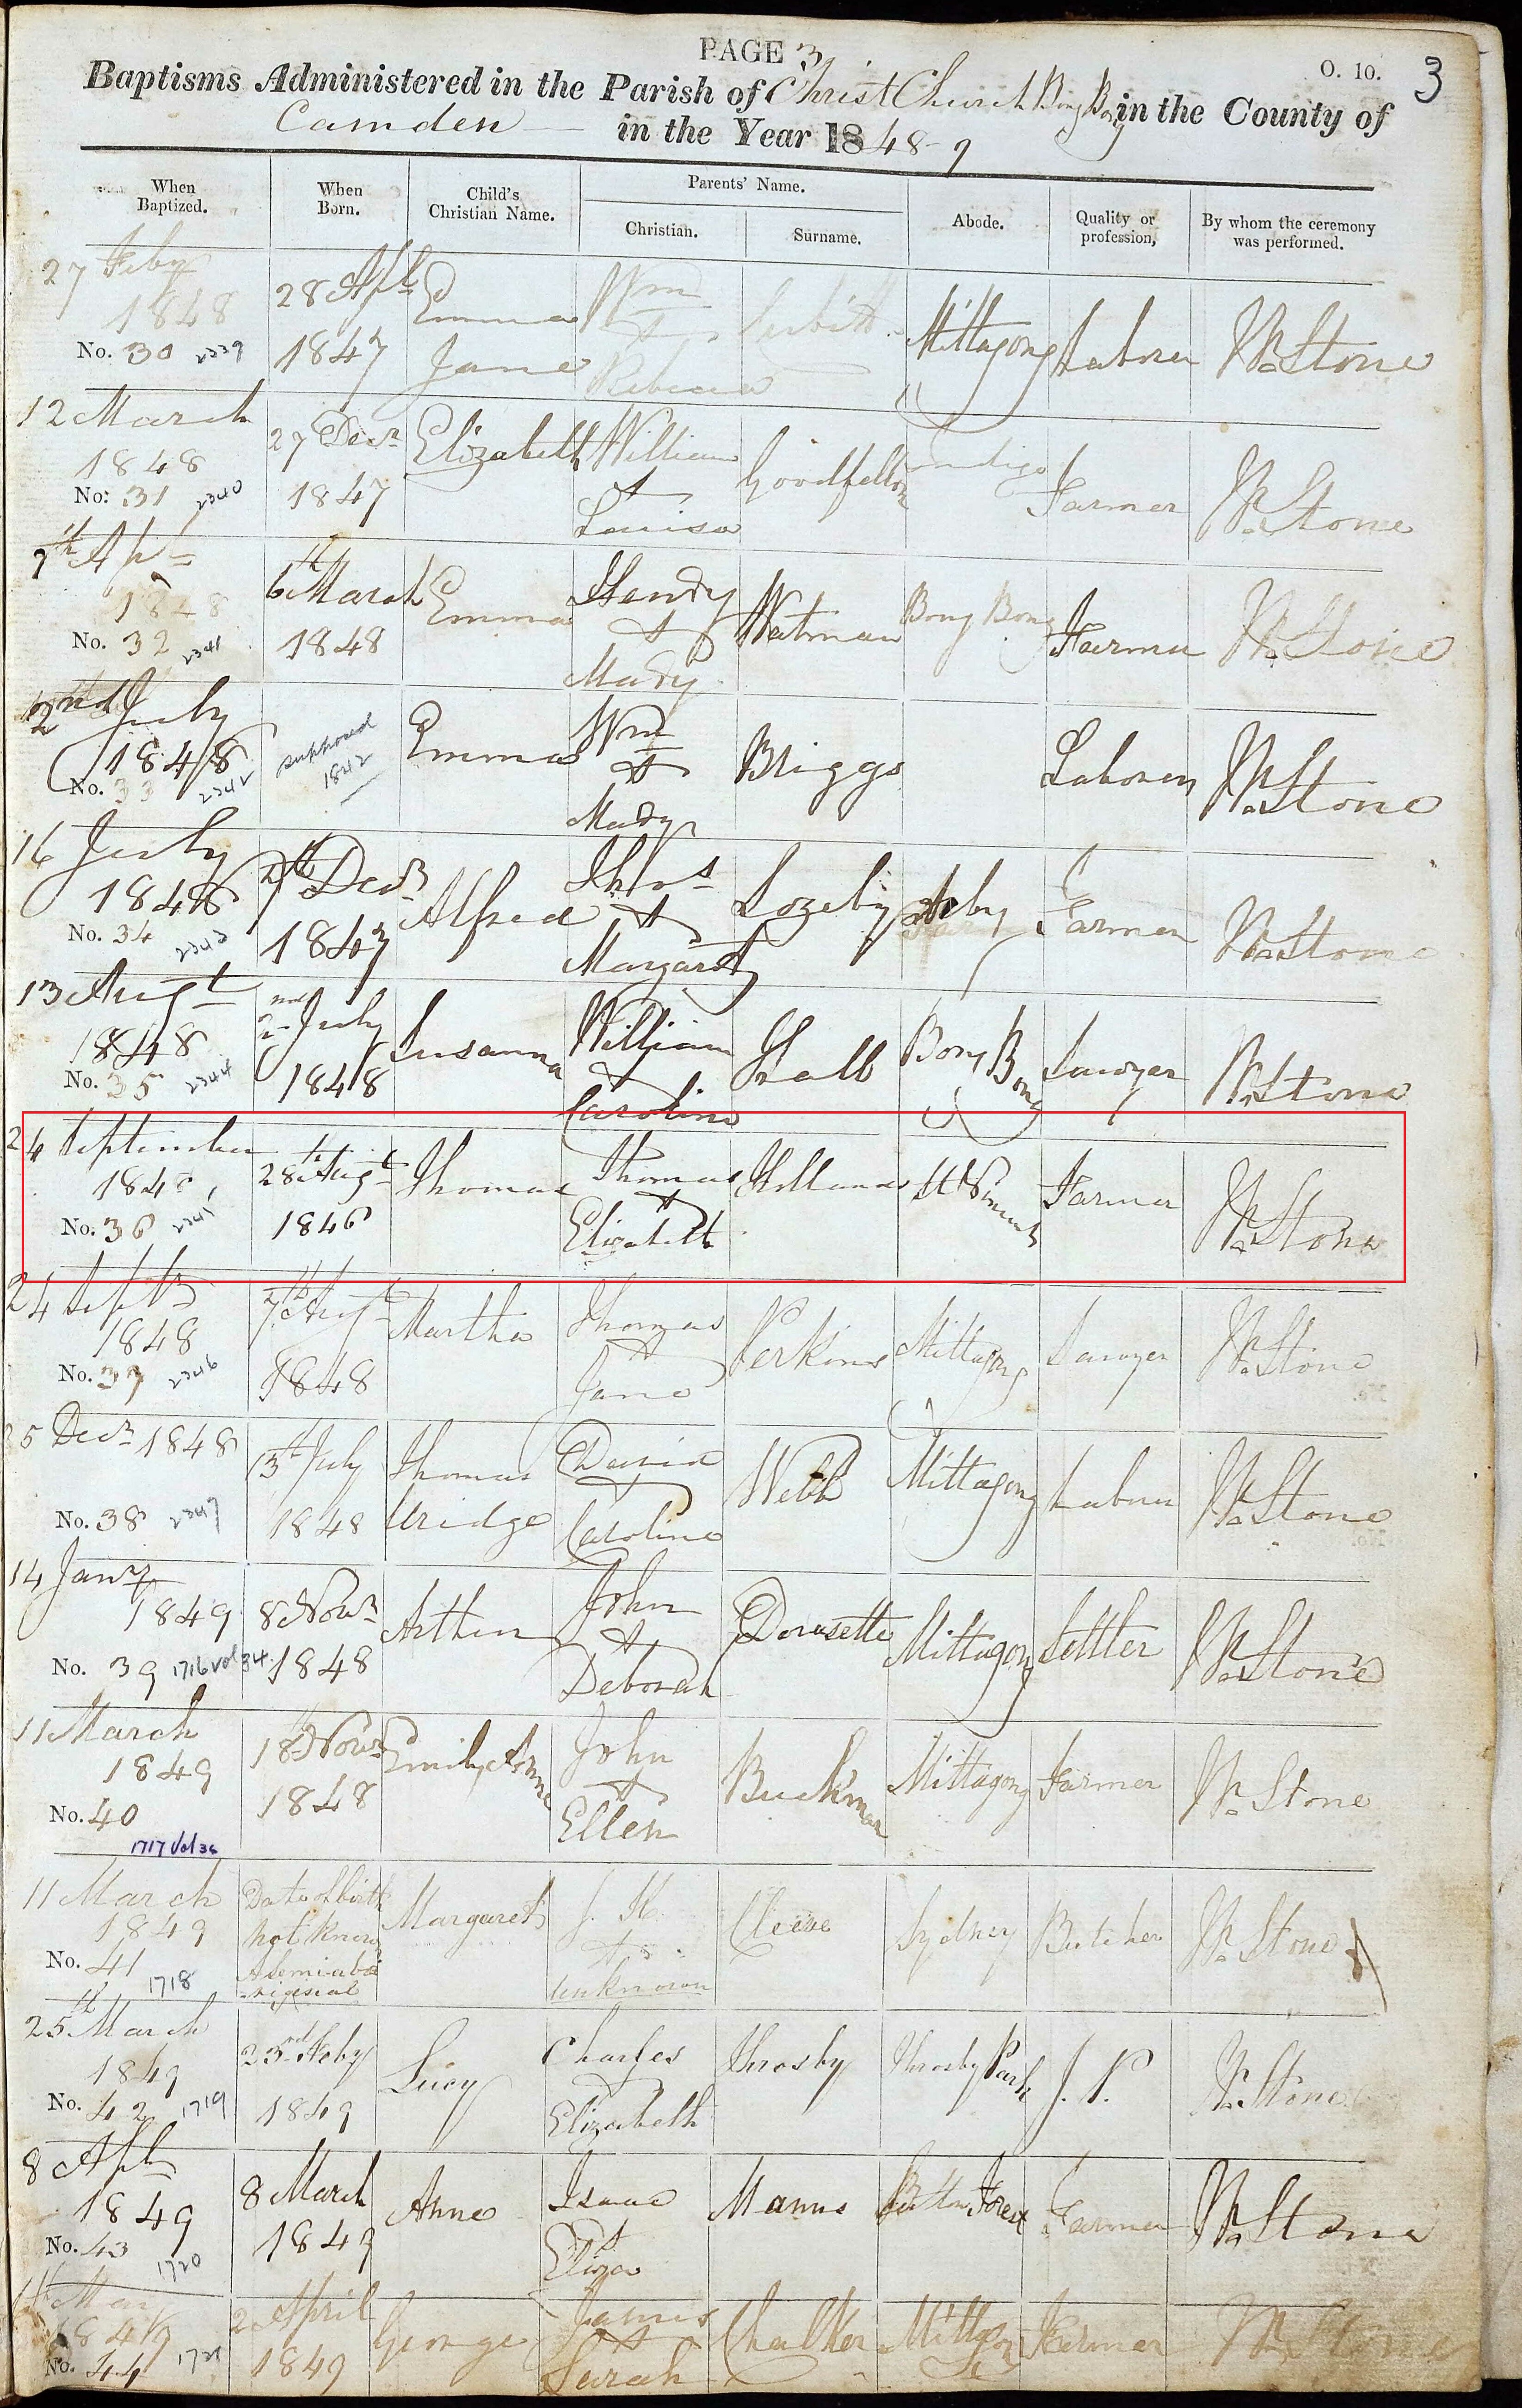 PAGE 3
O. 10.
3
Baptisms Administered in the Parish of Christ Church Bong Bong in the County of
Camden in the Year 1848-9
When Baptized.
When Born.
Child's Christian Name.
Parents' Name.
Christian.
Surname.
Abode.
Quality or profession,
By whom the ceremony was performed.
27 Feby 1848 No. 30 2339
28 Apl 1847
Emma Jane
Wm & Rebecca
Mittagong
Labourer
Wm Stone
12 March 1848 No. 31 2340
27 Decr 1847
Elizabeth
William & Louisa
Goodfellow
Farmer
Wm Stone
9th Apl 1848 No. 32 2341
6th March 1848
Emma
Henry & Mary
Watman
Bong Bong
Farmer
Wm Stone
2nd July 1848 No. 33 2342
supposed 1842
Emma
Wm & Mary
Briggs
Laborer
Wm Stone
16 July 1848 No. 34 2343
Decr 1847
Alfred
Thos & Margaret
Lozeby
Farmer
Wm Stone
13 Augt 1848 No. 35 2344
2nd July 1848
Susanna
William & Caroline
Hall
Bong Bong
Sawyer
Wm Stone
24 September 1848 No. 36 2345
28th Augt 1846
Thomas
Thomas & Elizabeth
Holland
Farmer
Wm Stone
24 Septr 1848 No. 37 2346
7th Augt 1848
Martha
Thomas & Jane
Perkins
Mittagong
Sawyer
Wm Stone
25 Decr 1848 No. 38 2347
July 1848
Thomas Uridge
David & Caroline
Webb
Mittagong
Labourer
Wm Stone
14 Jany 1849 No. 39 1716 vol 34
8 Novr 1848
Arthur
John & Deborah
Dorusette
Mittagong
Settler
Wm Stone
11 March 1849 No. 40 1717 Vol 34
18 Novr 1848
Emily Anne
John & Ellen
Buckman
Mittagong
Farmer
Wm Stone
11 March 1849 No. 41 1718
Date of birth not known A semi aboriginal
Margaret
J. K. & unknown
Cleeve
Sydney
Butcher
Wm Stone
25th March 1849 No. 42 1719
23rd Feby 1849
Lucy
Charles Elizabeth
Throsby
Throsby Park
J. P.
Wm Stone
8 Apl 1849 No. 43 1720
8 March 1849
Anne
Isaac & Eliza
Manns
Sutton Forest
Farmer
Wm Stone
May 1849 No. 44 1721
2 April 1849
George
James & Sarah
Chalker
Mittagong
Farmer
Wm Stone